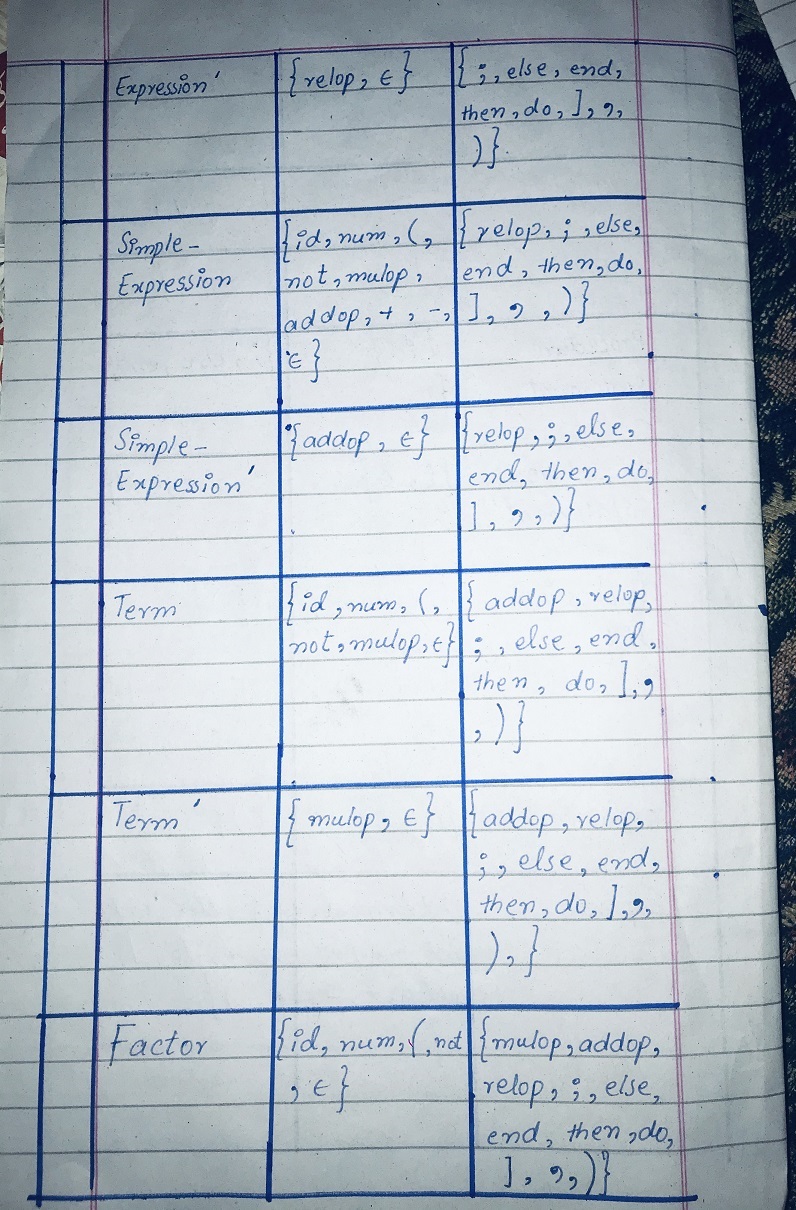 Expression'
{relop, ε}
{ ;, else, end,
then, do, ], ,,
)}.
Simple-
Expression
{id, num, (,
not, mulop,
addop, +, -,
ε}
{ relop, ; , else,
end, then, do,
], , , )}
Simple-
Expression'
{addop, ε}
{relop, ;, else,
end, then, do,
], , , )}
Term
{id, num, (,
not, mulop, ε}
{ addop, relop,
; , else, end,
then, do, ], ,
, )}
Term'
{ mulop, ε}
{addop, relop,
; , else, end,
then, do, ], ,,
), }
Factor
{id, num, (, not
, ε}
{mulop, addop,
relop, ;, else,
end, then, do,
], ,, )}